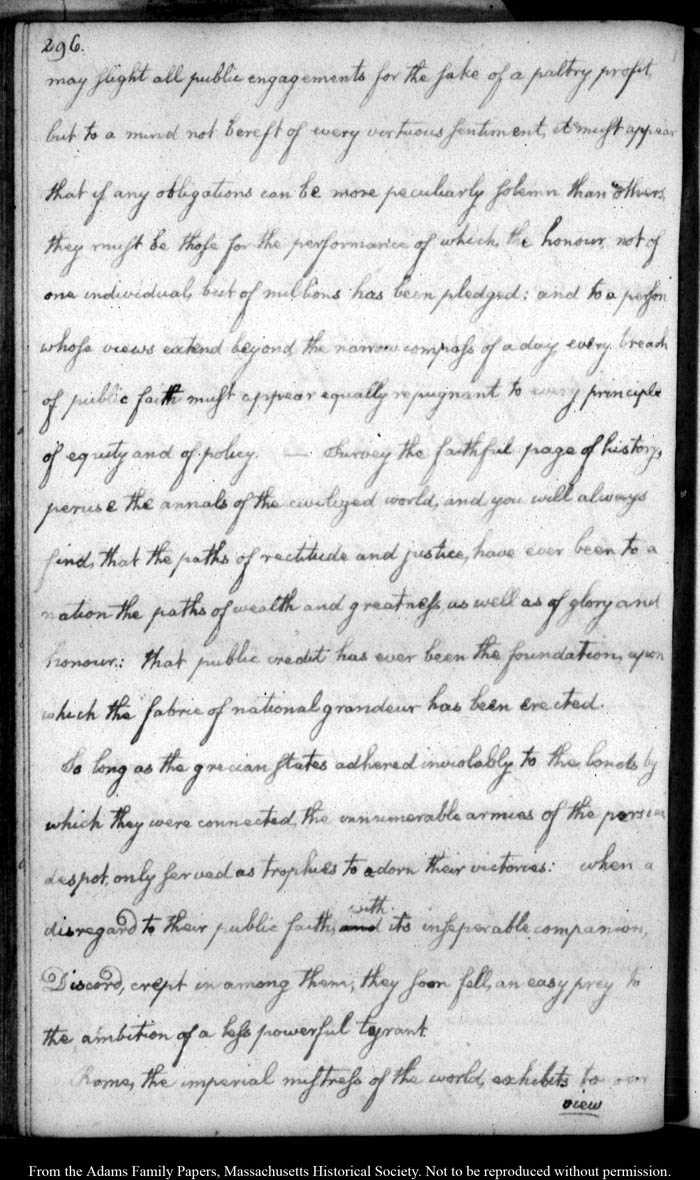 296.
may slight all public engagements for the sake of a paltry profit,
but to a mind not bereft of every virtuous sentiment, it must appear
that if any obligations can be more peculiarly solemn than others,
they must be those for the performance of which, the honour, not of
one individual, but of millions has been pledged: and to a person
whose views extend beyond the narrow compass of a day, every breach
of public faith must appear equally repugnant to every principle
of equity and of policy. — Survey the faithful page of history,
peruse the annals of the civilized world, and you will always
find, that the paths of rectitude and justice, have ever been to a
nation the paths of wealth and greatness, as well as of glory and
honour: that public credit has ever been the foundation, upon
which the fabric of national grandeur has been erected.
So long as the grecian states adhered inviolably to the bonds by
which they were connected, the innumerable armies of the persian
despot, only served as trophies to adorn their victories: when a
disregard to their public faith, and with its inseperable companion,
Discord, crept in among them, they soon fell, an easy prey to
the ambition of a less powerful tyrant.
Rome, the imperial mistress of the world, exhibits to our
view
From the Adams Family Papers, Massachusetts Historical Society. Not to be reproduced without permission.